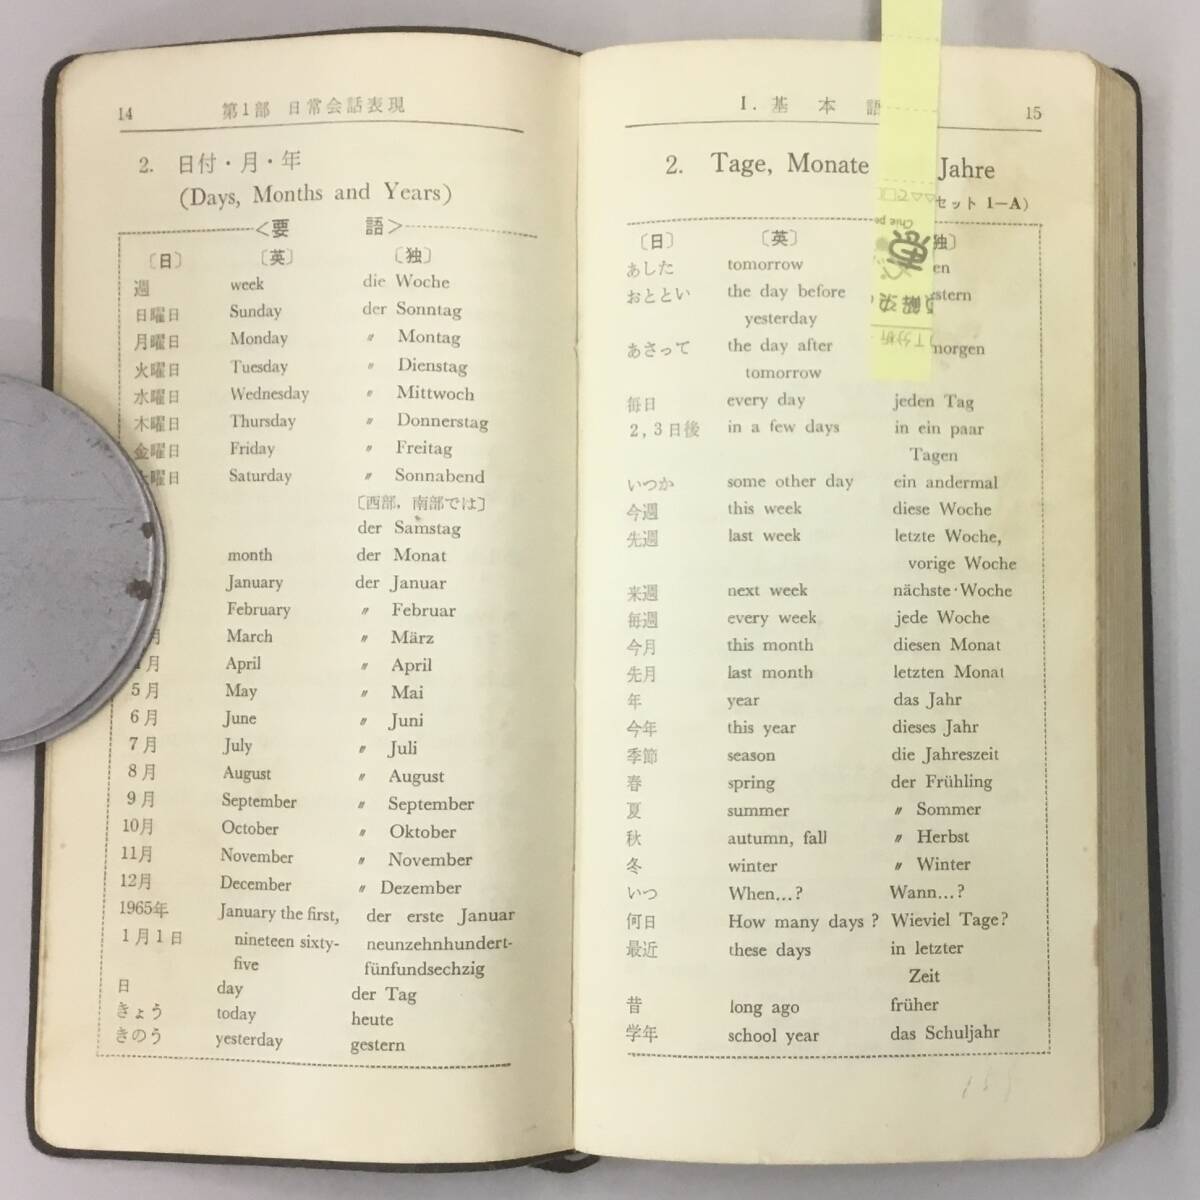 14 第1部 日常会話表現
2. 日付・月・年
(Days, Months and Years)
<要 語>
〔日〕 〔英〕 〔独〕
週 week die Woche
日曜日 Sunday der Sonntag
月曜日 Monday 〃 Montag
火曜日 Tuesday 〃 Dienstag
水曜日 Wednesday 〃 Mittwoch
木曜日 Thursday 〃 Donnerstag
金曜日 Friday 〃 Freitag
曜日 Saturday 〃 Sonnabend
〔西部,南部では〕
der Samstag
month der Monat
January der Januar
February 〃 Februar
月 March 〃 März
月 April 〃 April
5月 May 〃 Mai
6月 June 〃 Juni
7月 July 〃 Juli
8月 August 〃 August
9月 September 〃 September
10月 October 〃 Oktober
11月 November 〃 November
12月 December 〃 Dezember
1965年 January the first, der erste Januar
1月1日 nineteen sixty- neunzehnhundert-
five fünfundsechzig
日 day der Tag
きょう today heute
きのう yesterday gestern
I. 基 本 語 15
2. Tage, Monate Jahre
セット 1—A)
〔日〕 〔英〕 独〕
あした tomorrow en
おととい the day before stern
yesterday
あさって the day after morgen
tomorrow
毎日 every day jeden Tag
2,3日後 in a few days in ein paar
Tagen
いつか some other day ein andermal
今週 this week diese Woche
先週 last week letzte Woche,
vorige Woche
来週 next week nächste Woche
毎週 every week jede Woche
今月 this month diesen Monat
先月 last month letzten Monat
年 year das Jahr
今年 this year dieses Jahr
季節 season die Jahreszeit
春 spring der Frühling
夏 summer 〃 Sommer
秋 autumn, fall 〃 Herbst
冬 winter 〃 Winter
いつ When...? Wann...?
何日 How many days? Wieviel Tage?
最近 these days in letzter
Zeit
昔 long ago früher
学年 school year das Schuljahr